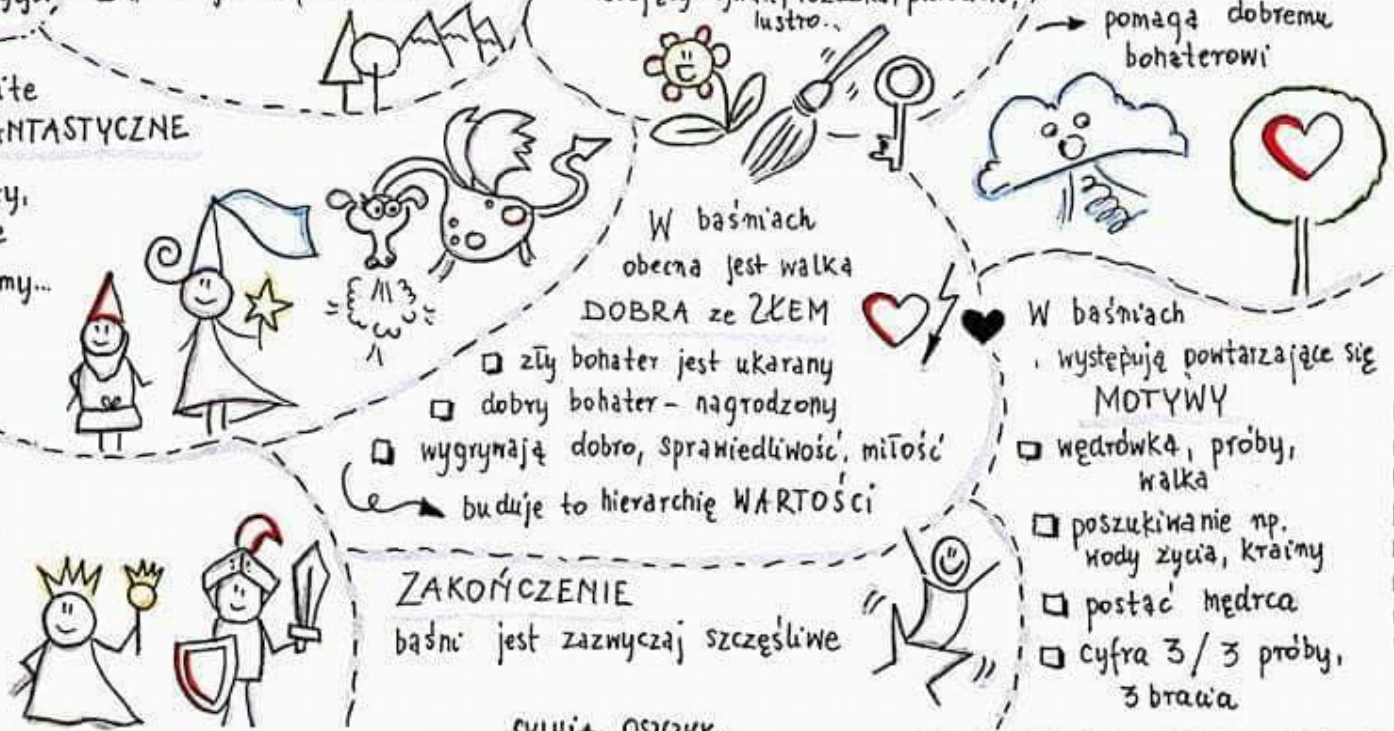 lustro..
pomaga dobremu
bohaterowi
W baśniach
obecna jest walka
DOBRA ze ZŁEM
zły bohater jest ukarany
dobry bohater – nagrodzony
wygrywają dobro, sprawiedliwość, miłość
buduje to hierarchię WARTOŚCI
W baśniach
występują powtarzające się
MOTYWY
wędrówka, próby,
walka
poszukiwanie np.
wody życia, krainy
postać mędrca
cyfra 3 / 3 próby,
3 bracia
ZAKOŃCZENIE
baśni jest zazwyczaj szczęśliwe